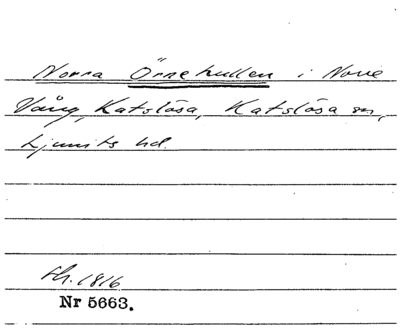 Norra Örnehullen i Norre
Vång, Katslösa, Katslösa sn,
Ljunits hd.
Sk. 1816
Nr 5663.